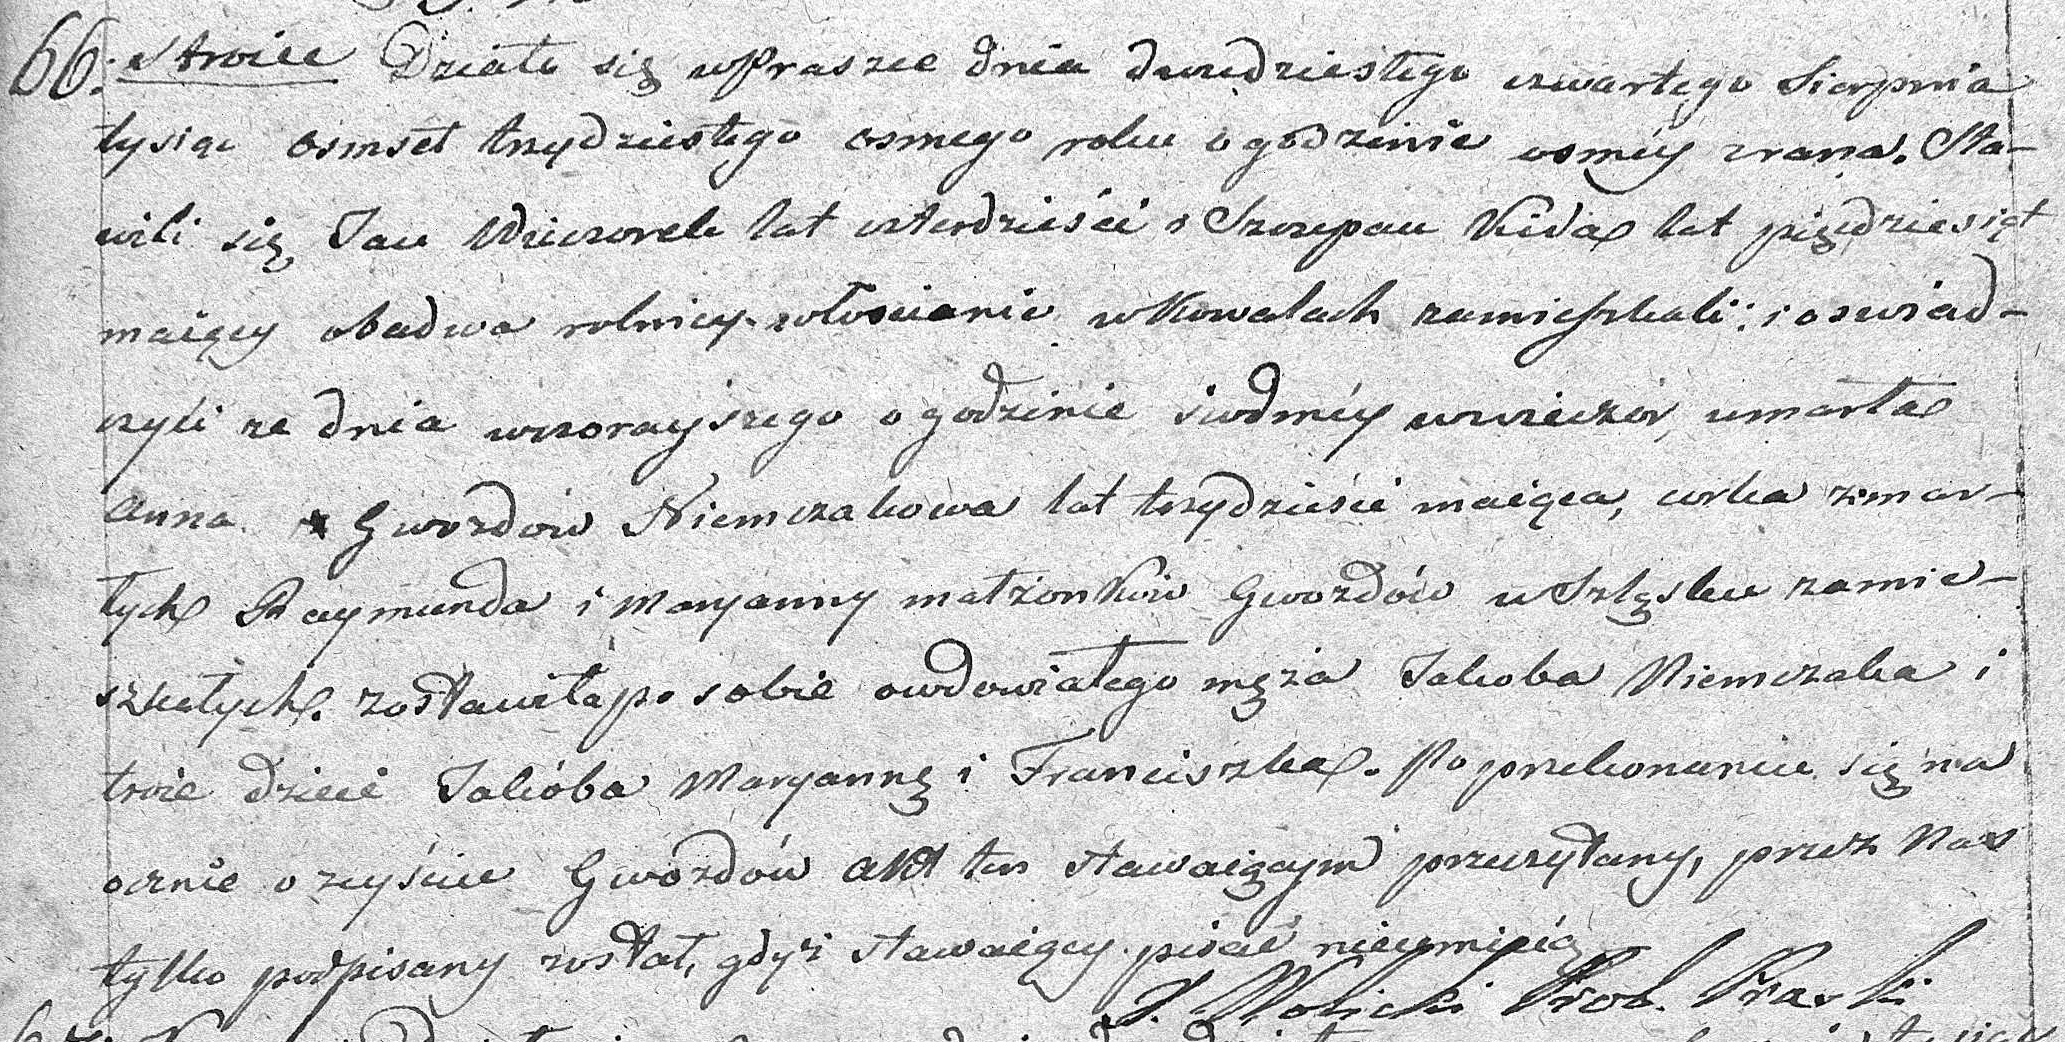 66. Stroiec Działo się w Praszce dnia dwudziestego czwartego Sierpnia
tysiąc osmset trzydziestego osmego roku o godzinie osméy zrana. Sta-
wili się Jan Wieczorek lat czterdzieści i Szczepan Kida lat pięćdziesiąt
maiący obadwa rolnicy włościanie w Kowalach zamieszkali: i oswiad-
czyli ze dnia wczorayszego o godzinie siodméy wwieczor, umarła
Anna Gwozdów Niemczakowa lat trzydzieście maiąca, corka zmar-
łych Raymunda i Maryanny małżonków Gwozdów w Szląsku zamie-
szkałych. zostawiła po sobie owdowiałego męża Jakoba Niemczaka i
troie dzieci Jakóba Maryannę i Franciszka. Po przekonaniu się na
ocznie o zeyściu Gwozdów Akt ten stawaiącym przeczytany, przez Nas
tylko podpisany został, gdyż stawaiący pisać nieumieią